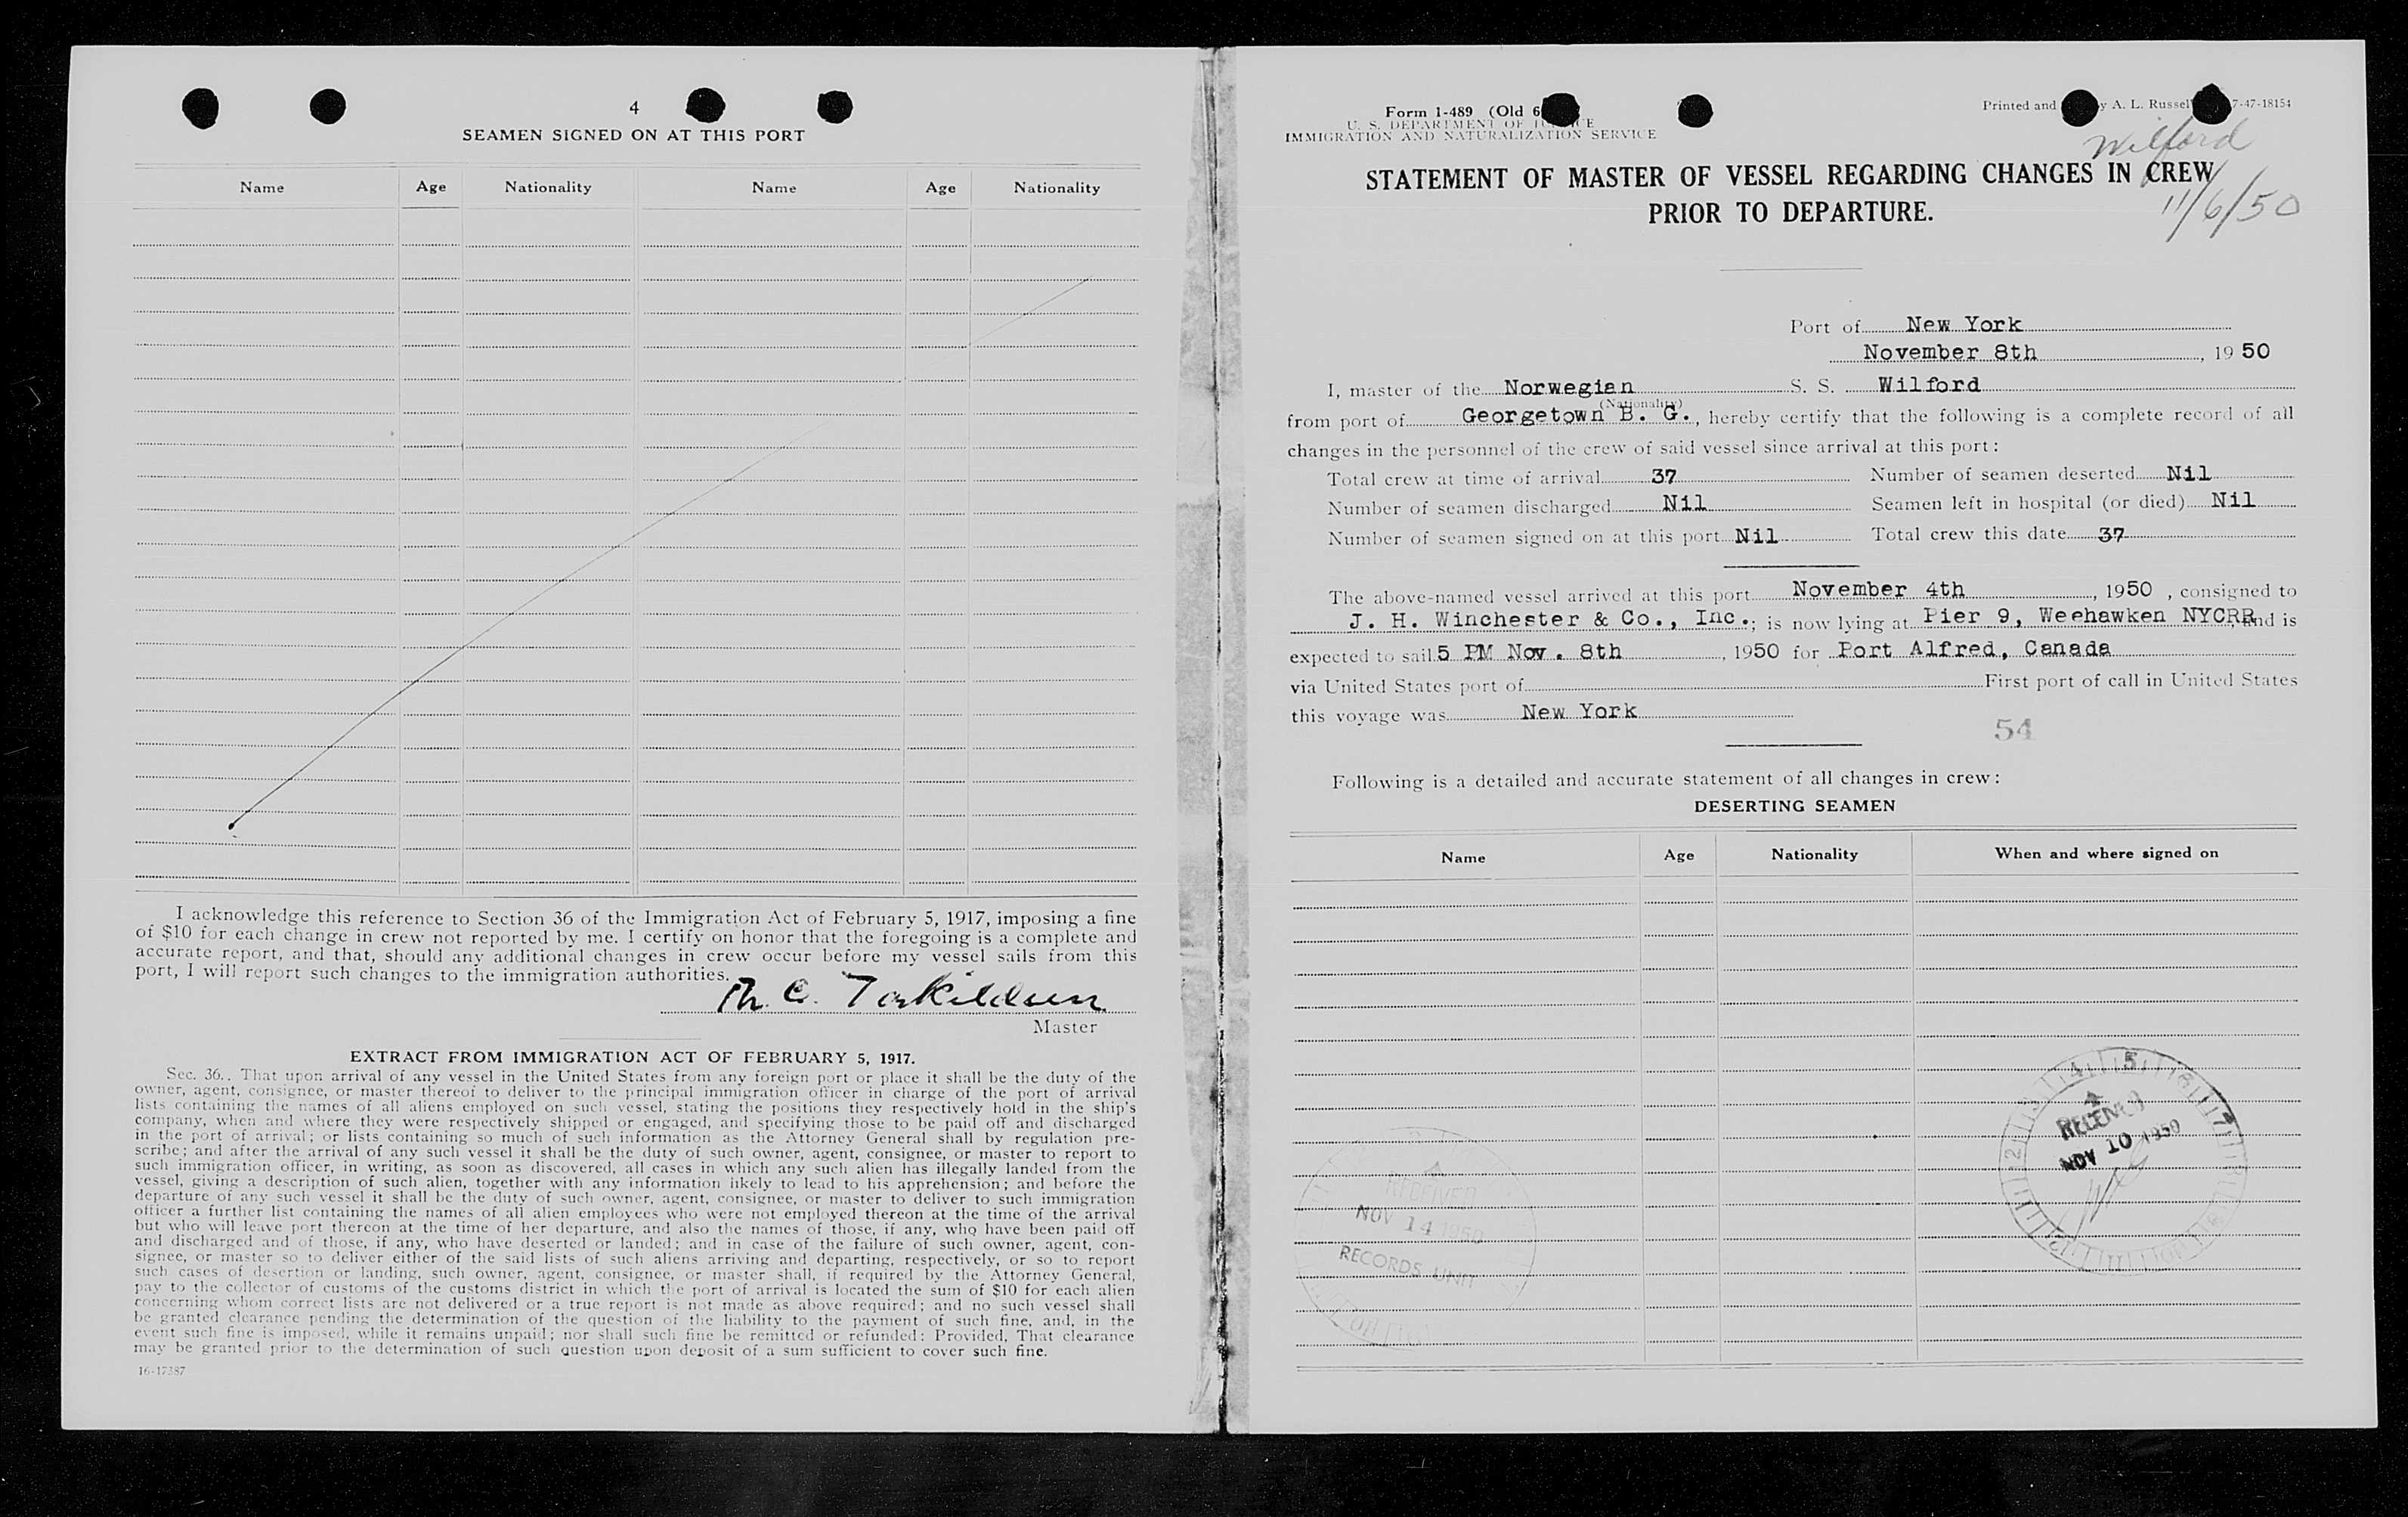 4
SEAMEN SIGNED ON AT THIS PORT
Name Age Nationality Name Age Nationality
I acknowledge this reference to Section 36 of the Immigration Act of February 5, 1917, imposing a fine
of $10 for each change in crew not reported by me. I certify on honor that the foregoing is a complete and
accurate report, and that, should any additional changes in crew occur before my vessel sails from this
port, I will report such changes to the immigration authorities.
Master
EXTRACT FROM IMMIGRATION ACT OF FEBRUARY 5, 1917.
Sec. 36.. That upon arrival of any vessel in the United States from any foreign port or place it shall be the duty of the
owner, agent, consignee, or master thereof to deliver to the principal immigration officer in charge of the port of arrival
lists containing the names of all aliens employed on such vessel, stating the positions they respectively hold in the ship's
company, when and where they were respectively shipped or engaged, and specifying those to be paid off and discharged
in the port of arrival; or lists containing so much of such information as the Attorney General shall by regulation pre-
scribe; and after the arrival of any such vessel it shall be the duty of such owner, agent, consignee, or master to report to
such immigration officer, in writing, as soon as discovered, all cases in which any such alien has illegally landed from the
vessel, giving a description of such alien, together with any information likely to lead to his apprehension; and before the
departure of any such vessel it shall be the duty of such owner, agent, consignee, or master to deliver to such immigration
officer a further list containing the names of all alien employees who were not employed thereon at the time of the arrival
but who will leave port thereon at the time of her departure, and also the names of those, if any, who have been paid off
and discharged and of those, if any, who have deserted or landed; and in case of the failure of such owner, agent, con-
signee, or master so to deliver either of the said lists of such aliens arriving and departing, respectively, or so to report
such cases of desertion or landing, such owner, agent, consignee, or master shall, if required by the Attorney General,
pay to the collector of customs of the customs district in which the port of arrival is located the sum of $10 for each alien
concerning whom correct lists are not delivered or a true report is not made as above required; and no such vessel shall
be granted clearance pending the determination of the question of the liability to the payment of such fine, and, in the
event such fine is imposed, while it remains unpaid; nor shall such fine be remitted or refunded: Provided, That clearance
may be granted prior to the determination of such question upon deposit of a sum sufficient to cover such fine.
16-17387
Form I-489 (Old 6
U. S. DEPARTMENT OF JUSTICE
IMMIGRATION AND NATURALIZATION SERVICE
Printed and y A. L. Russel 7-47-18154
Wilford
11/6/50
STATEMENT OF MASTER OF VESSEL REGARDING CHANGES IN CREW
PRIOR TO DEPARTURE.
Port of New York
November 8th, 19 50
I, master of the Norwegian S. S. Wilford
(Nationality)
from port of Georgetown B. G., hereby certify that the following is a complete record of all
changes in the personnel of the crew of said vessel since arrival at this port:
Total crew at time of arrival 37 Number of seamen deserted Nil
Number of seamen discharged Nil Seamen left in hospital (or died) Nil
Number of seamen signed on at this port Nil Total crew this date 37
The above-named vessel arrived at this port November 4th, 1950, consigned to
J. H. Winchester & Co., Inc.; is now lying at Pier 9, Weehawken NYCRR and is
expected to sail 5 PM Nov. 8th, 1950 for Port Alfred, Canada
via United States port of First port of call in United States
this voyage was New York
54
Following is a detailed and accurate statement of all changes in crew:
DESERTING SEAMEN
Name Age Nationality When and where signed on
RECEIVED
NOV 10 1950
RECEIVED
NOV 14 1950
RECORDS UNIT